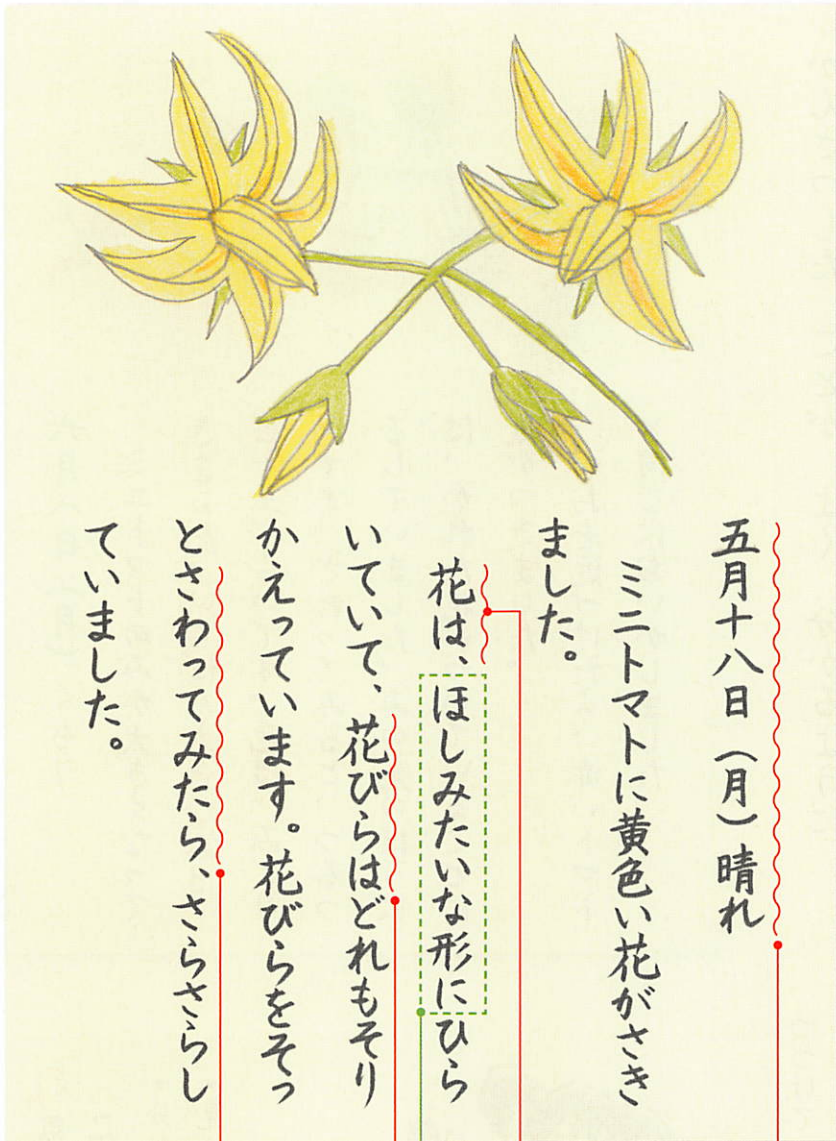 五月十八日（月）晴れ
ミニトマトに黄色い花がさき
ました。
花は、ほしみたいな形にひら
いていて、花びらはどれもそり
かえっています。花びらをそっ
とさわってみたら、さらさらし
ていました。